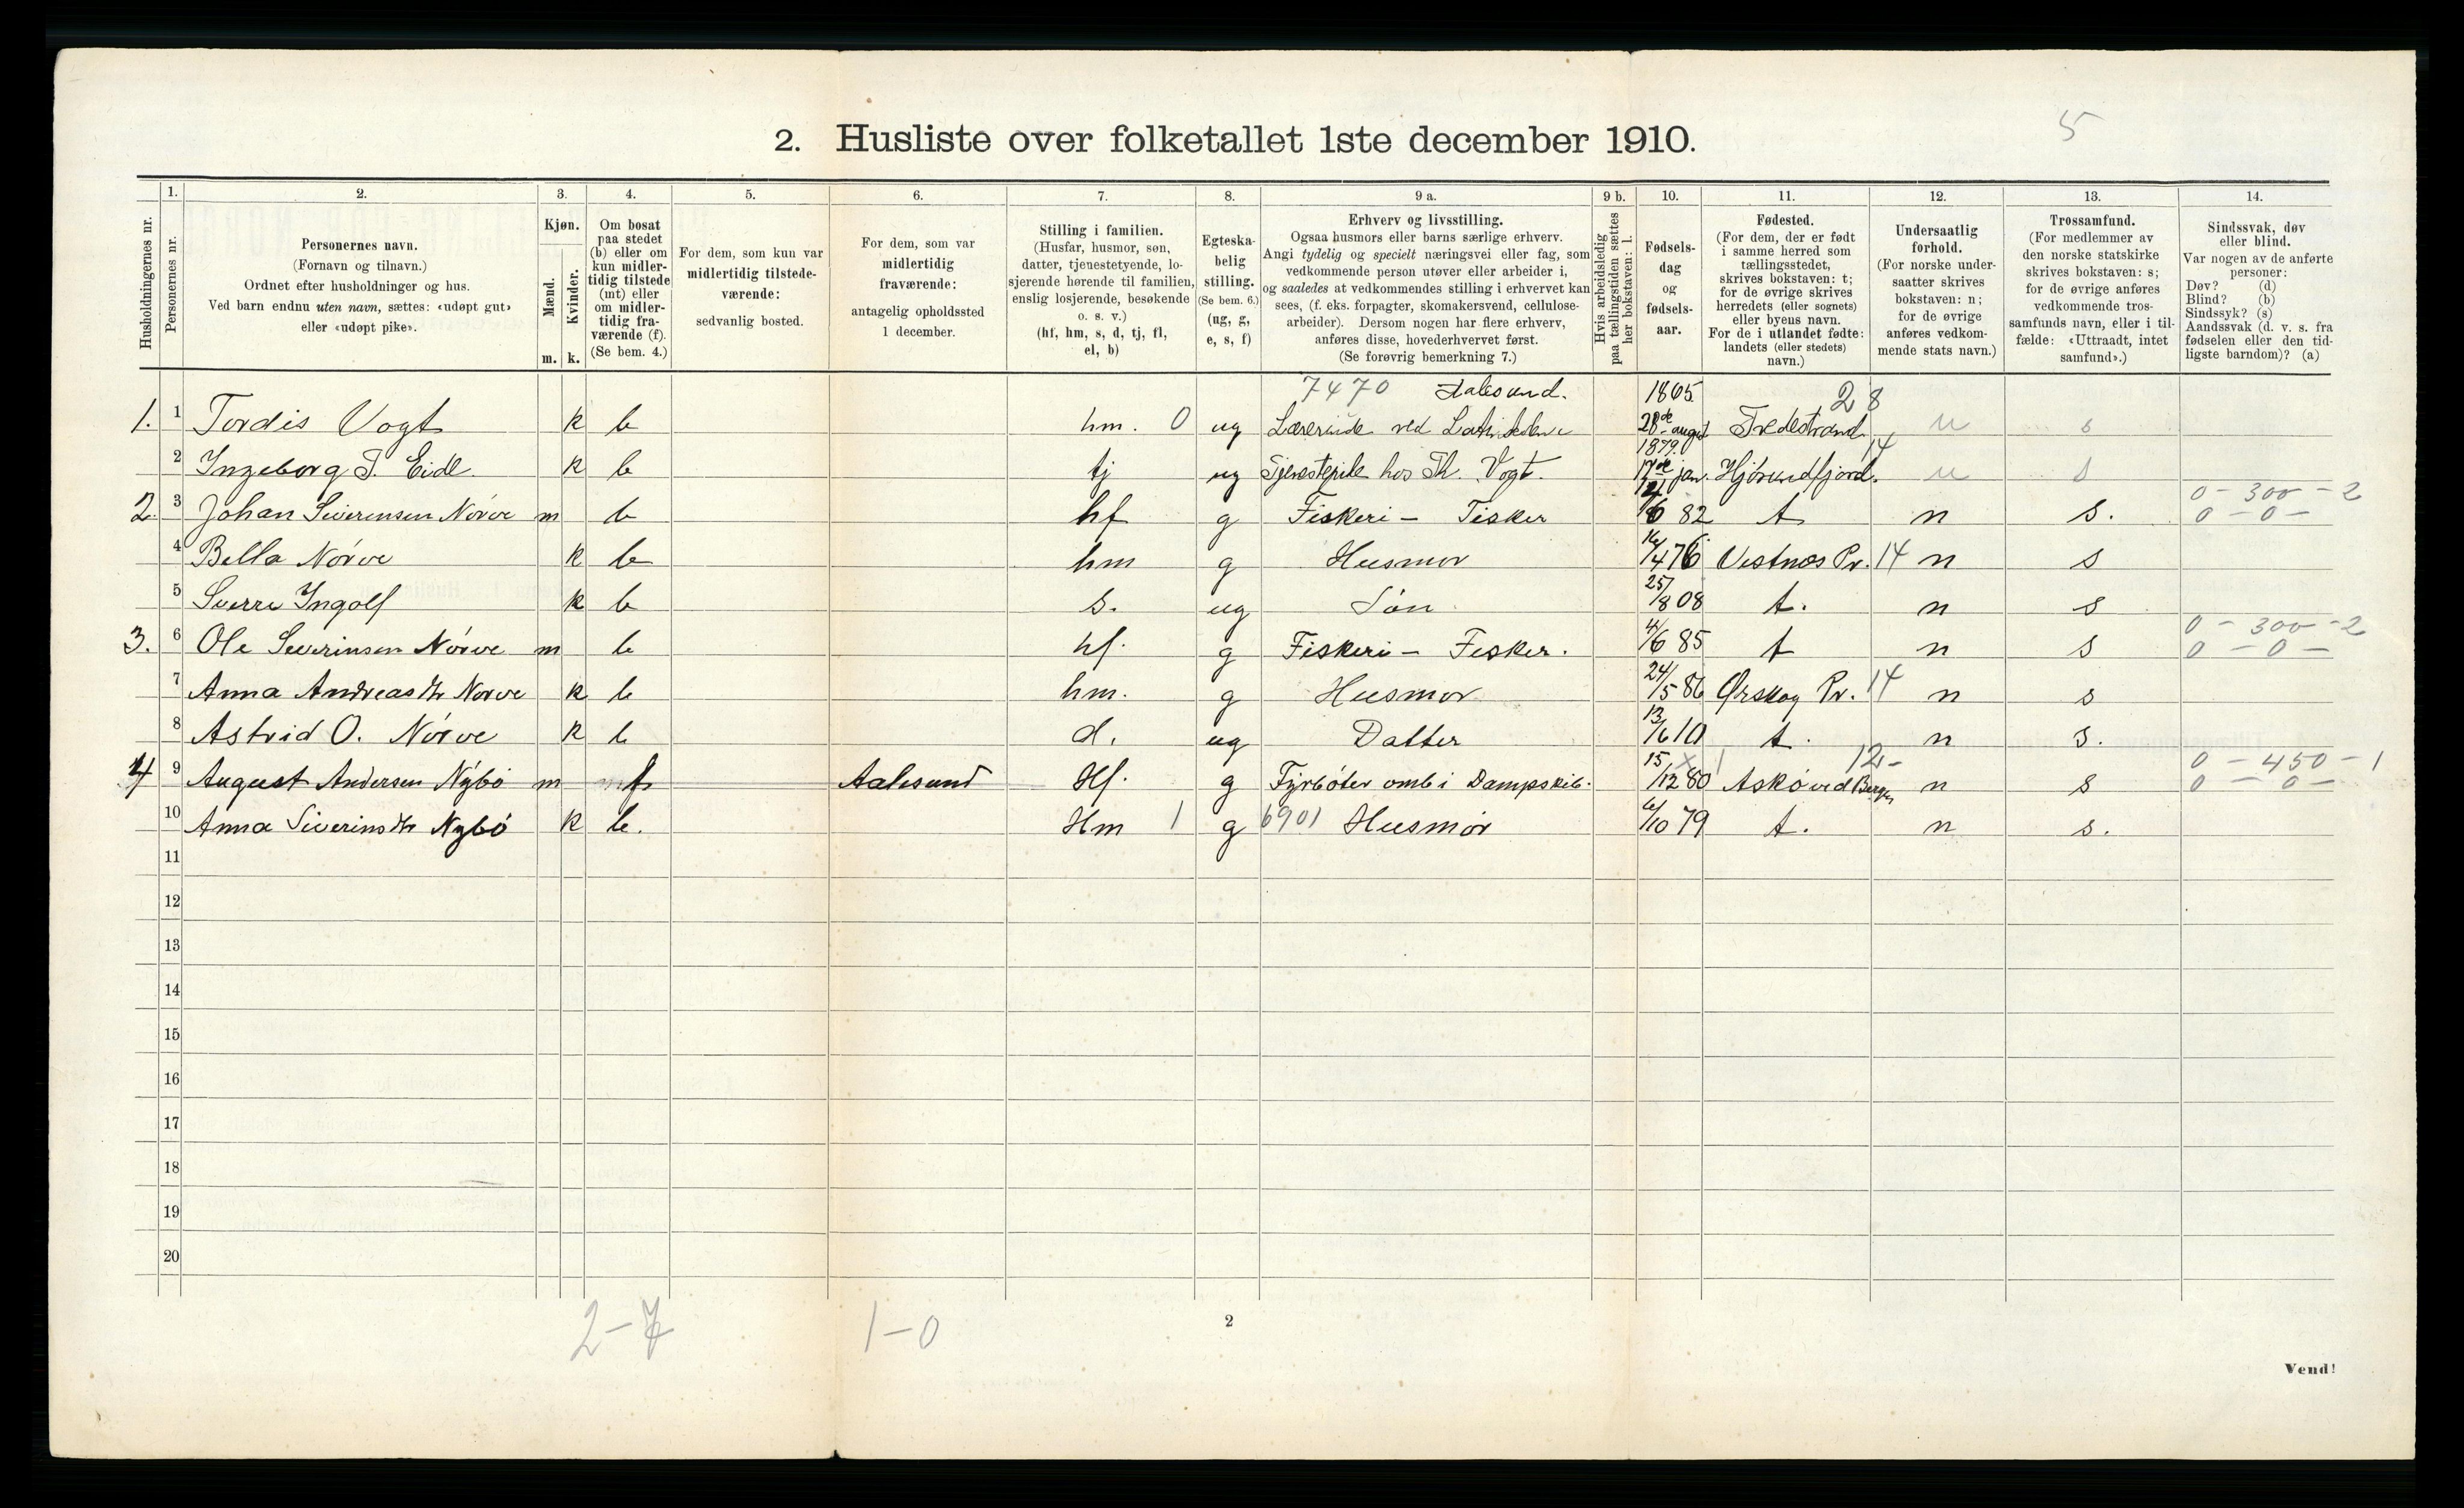 2. Husliste over folketallet 1ste december 1910.
5
1. 2. 3. 4. 5. 6. 7. 8. 9 a. 9 b. 10. 11. 12. 13. 14.
Husholdningernes nr.
Personernes nr.
Personernes navn.
(Fornavn og tilnavn.)
Ordnet efter husholdninger og hus.
Ved barn endnu uten navn, sættes: «udøpt gut»
eller «udøpt pike».
Kjøn.
Mænd.
Kvinder.
m. k.
Om bosat
paa stedet
(b) eller om
kun midler-
tidig tilstede
(mt) eller
om midler-
tidig fra-
værende (f).
(Se bem. 4.)
For dem, som kun var
midlertidig tilstede-
værende:
sedvanlig bosted.
For dem, som var
midlertidig
fraværende:
antagelig opholdssted
1 december.
Stilling i familien.
(Husfar, husmor, søn,
datter, tjenestetyende, lo-
sjerende hørende til familien,
enslig losjerende, besøkende
o. s. v.)
(hf, hm, s, d, tj, fl,
el, b)
Egteska-
belig
stilling.
(Se bem. 6.)
(ug, g,
e, s, f)
Erhverv og livsstilling.
Ogsaa husmors eller barns særlige erhverv.
Angi tydelig og specielt næringsvei eller fag, som
vedkommende person utøver eller arbeider i,
og saaledes at vedkommendes stilling i erhvervet kan
sees, (f. eks. forpagter, skomakersvend, cellulose-
arbeider). Dersom nogen har flere erhverv,
anføres disse, hovederhvervet først.
(Se forøvrig bemerkning 7.)
Hvis arbeidsledig
paa tællingstiden sættes
her bokstaven: l.
Fødsels-
dag
og
fødsels-
aar.
Fødested.
(For dem, der er født
i samme herred som
tællingsstedet,
skrives bokstaven: t;
for de øvrige skrives
herredets (eller sognets)
eller byens navn.
For de i utlandet fødte:
landets (eller stedets)
navn.)
Undersaatlig
forhold.
(For norske under-
saatter skrives
bokstaven: n;
for de øvrige
anføres vedkom-
mende stats navn.)
Trossamfund.
(For medlemmer av
den norske statskirke
skrives bokstaven: s;
for de øvrige anføres
vedkommende tros-
samfunds navn, eller i til-
fælde: «Uttraadt, intet
samfund».)
Sindssvak, døv
eller blind.
Var nogen av de anførte
personer:
Døv? (d)
Blind? (b)
Sindssyk? (s)
Aandssvak (d. v. s. fra
fødselen eller den tid-
ligste barndom)? (a)
7470 Aalesund. 1865 28
1. 1 Tordis Vogt k b hm. 0 ug Lærerinde ved 28de august Tvedestrand n s
1879. 14
2 Ingeborg T. Eide k b tj ug Tjenestepike hos Th. Vogt. 17de jan. Hjørundfjord. n s
0 - 300 - 2
2. 3 Johan Siverensen Nörve m b hf g Fiskeri - Fisker /6 82 t n s. 0 - 0 -
4 Bella Nörve k b hm g Husmor 16/4 76 Vestnæs Pr. 14 n s
5 Sverre Ingolf k b s. ug Sön 25/8 08 t. n s
0 - 300 - 2
3. 6 Ole Severinsen Nörve m b hf. g Fiskeri - Fisker. 4/6 85 t n s 0 - 0 -
7 Anna Andreasdtr Nörve k b hm. g Husmor 24/5 86 Ørskog Pr. 14 n s
8 Astrid O. Nörve k b d. ug Datter 13/6 10 t. n s.
12 - 0 - 450 - 1
4 9 August Andersen Nybö m f Aalesund Hf. g Fyrböter omb i Dampskib. 15/12 80 Askö ved Bergen n s 0 - 0 -
10 Anna Siverinsdtr Nybö k b. Hm 1 g 6901 Husmor 6/10 79 t. n s.
11
12
13
14
15
16
17
18
19
20
2-7 1-0
2
Vend!